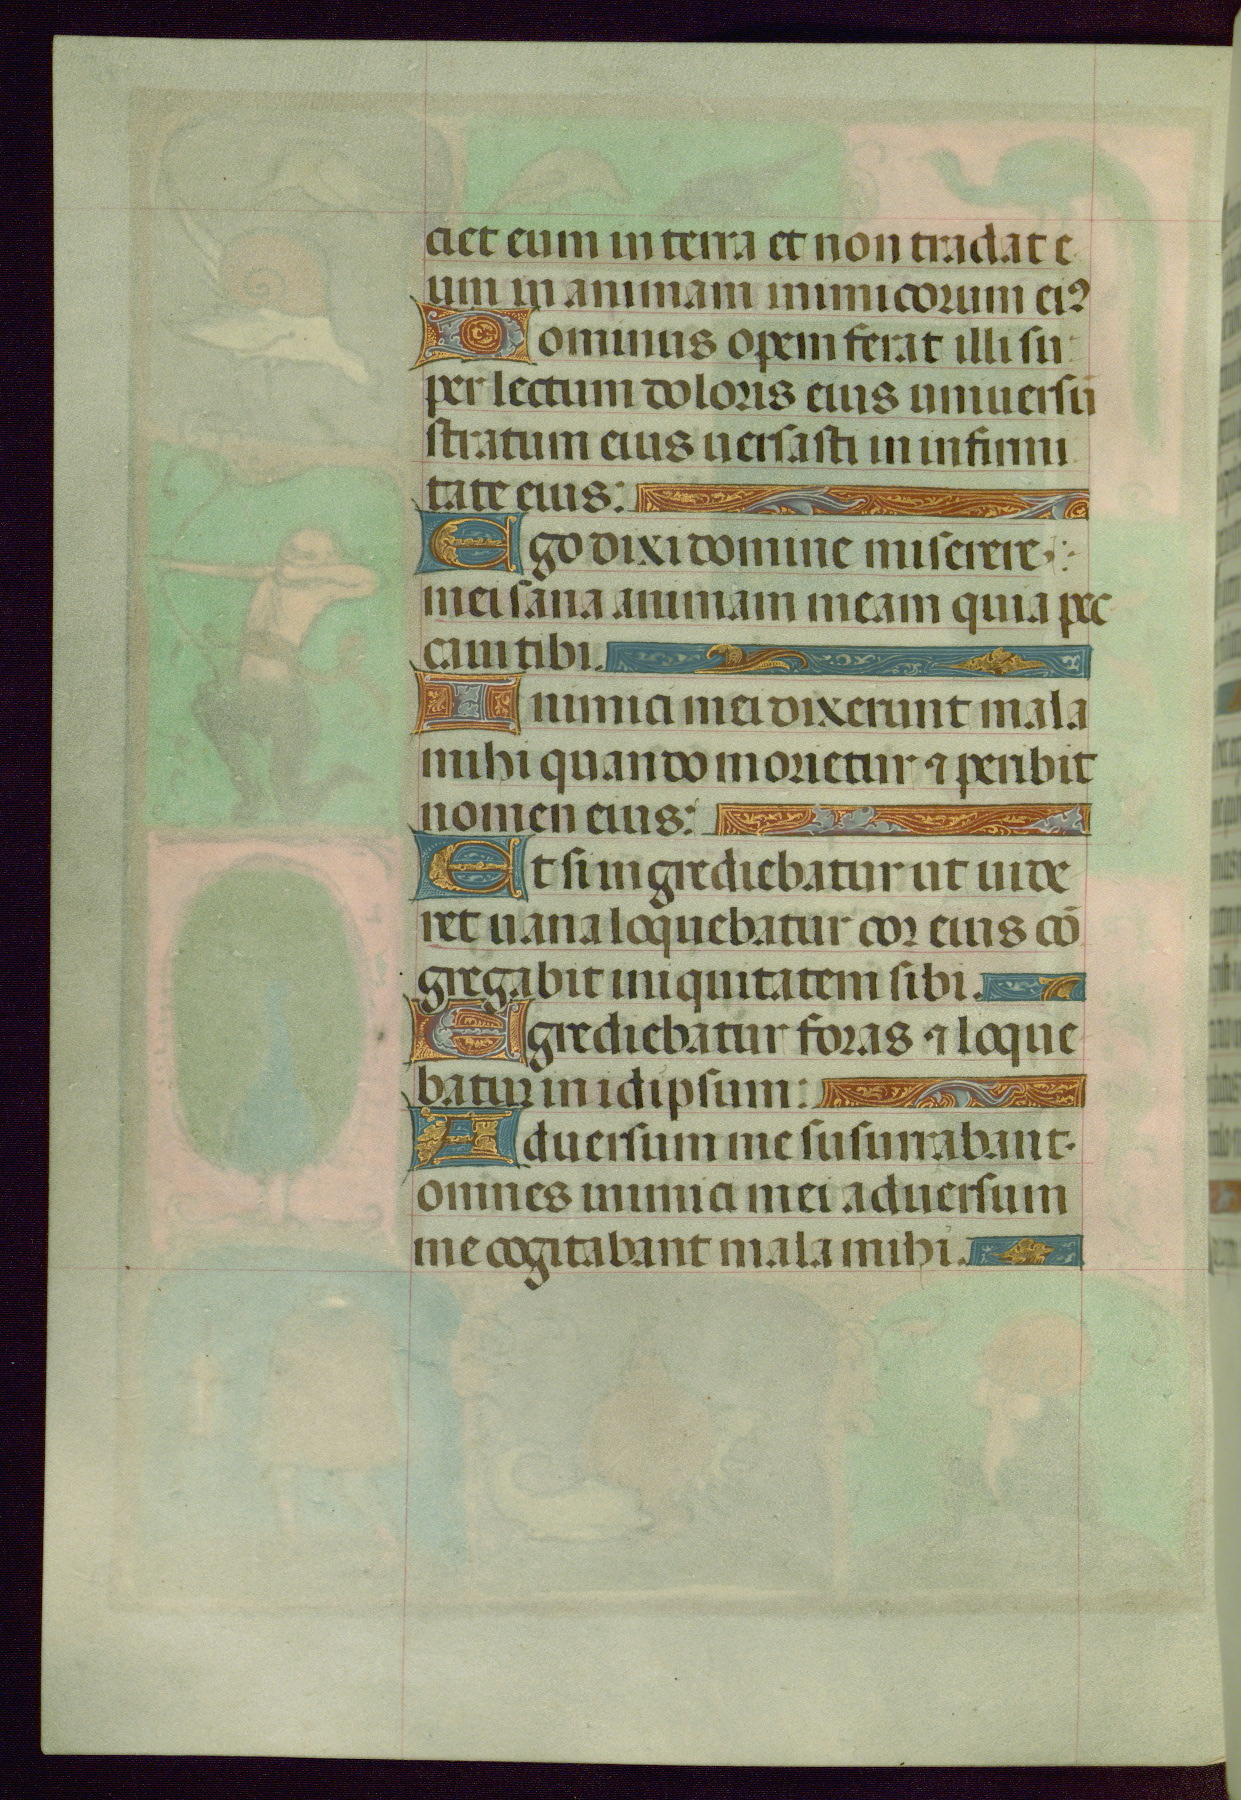 ciet eum in terra et non tradat e
um in animam inimicorum eiꝰ
Dominus opem ferat illi su
per lectum doloris eius uniuersū
stratum eius uersasti in infirmi
tate eius:
Ego dixi domine miserere
mei sana animam meam quia pec
caui tibi.
Inimici mei dixerunt mala
mihi quando morietur ⁊ peribit
nomen eius:
Et si ingrediebatur ut uide
ret uana loquebatur cor eius cō
gregabit iniquitatem sibi.
Egrediebatur foras ⁊ loque
batur in idipsum:
Aduersum me susurrabant
omnes inimici mei aduersum
me cogitabant mala mihi.